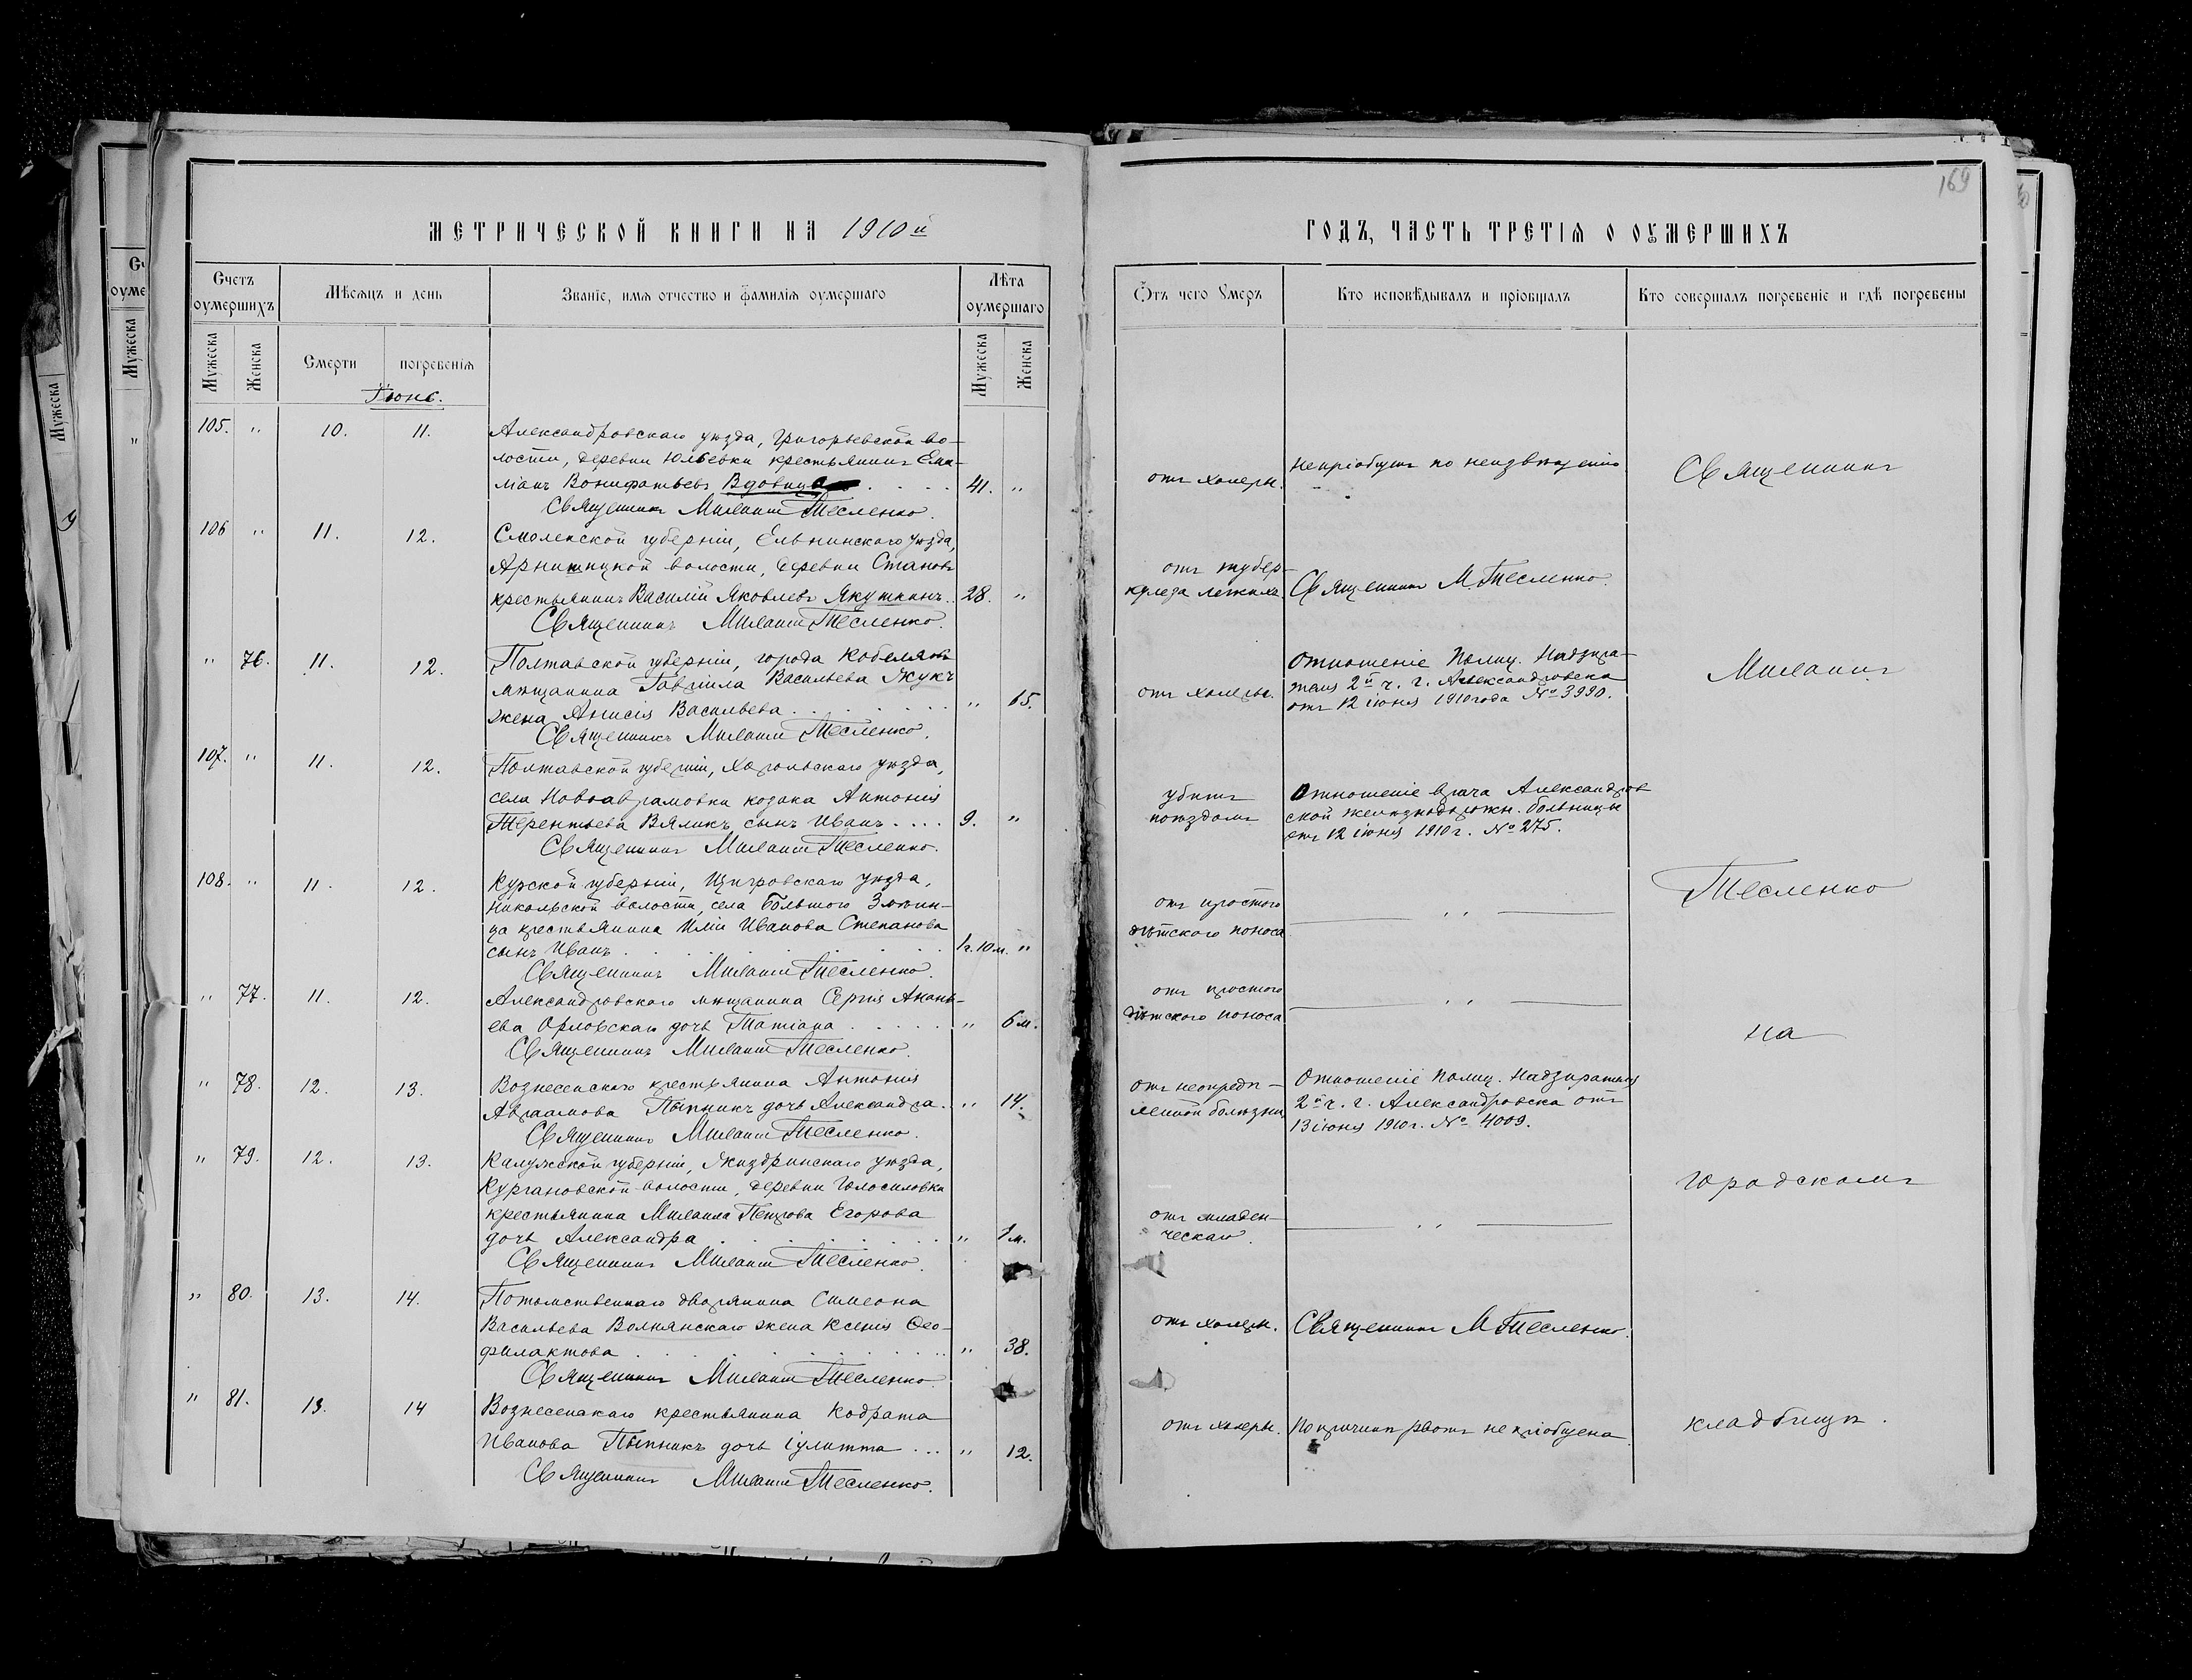 169
МЕТРИЧЕСКОЙ КНИГИ НА 1910й
ГОДЪ, ЧАСТЬ ТРЕТІЯ О ОУМЕРШИХЪ
Счетъ оумершихъ
Мѣсяцъ и день
Званіе, имя отчество и фамилія оумершаго
Лѣта оумершаго
Отъ чего умеръ
Кто исповѣдывалъ и пріобщалъ
Кто совершалъ погребеніе и гдѣ погребены
Мужеска
Женска
Смерти
погребенія
Мужеска
Женска
Іюнь.
105. " 10. 11.
Александровскаго уѣзда, Григорьевской во-
лости, деревни Юльевки крестьянинъ Еми-
ліанъ Вонифатьевъ Вдовиц 41. "
Священникъ Михаилъ Тесленко.
отъ холеры.
Непріобщенъ по неизвѣщенію
106 " 11. 12.
Смоленской губерніи, Ельнинскаго уѣзда,
волости, деревни Становъ
крестьянинъ Василій Яковлевъ Якушкинъ. 28. "
Священникъ Михаилъ Тесленко.
отъ тубер-
кулеза легкихъ.
Священникъ М. Тесленко.
" 76. 11. 12.
Полтавской губерніи, города Кобелякъ
мѣщанина Гавріила Васильева Жукъ
жена Анисія Васильева " 65.
Священникъ Михаилъ Тесленко.
отъ холеры.
Отношеніе Полиц. Надзира-
теля 2й ч. г. Александровска
отъ 12 іюня 1910 года № 3990.
107. " 11. 12.
Полтавской губерніи, Хорольскаго уѣзда,
села Новоаврамовки козака Антонія
Терентьева Вяликъ сынъ Иванъ 9. "
Священникъ Михаилъ Тесленко.
убитъ
поѣздомъ
Отношеніе врача Александров
ской желѣзнодорожн. больницы
отъ 12 іюня 1910 г. № 275.
108. " 11. 12.
Курской губерніи, Щигровскаго уѣзда,
Никольской волости, села Большого Змѣин-
ца крестьянина Иліи Иванова Степанова
сынъ Иванъ 1г. 10м. "
Священникъ Михаилъ Тесленко.
отъ простого
дѣтскаго поноса
— " —
" 77. 11. 12.
Александровскаго мѣщанина Сергія Анань-
ева Орловскаго дочь Татіана " 6м.
Священникъ Михаилъ Тесленко.
отъ простого
дѣтскаго поноса
— " —
" 78. 12. 13.
Вознесенскаго крестьянина Антонія
Авраамова Пыпникъ дочь Александра. " 14.
Священникъ Михаилъ Тесленко.
отъ неопредѣ-
ленной болѣзни
Отношеніе Полиц. Надзирателя
2й ч. г. Александровска отъ
13 іюня 1910 г. № 4009.
" 79. 12. 13.
Калужской губерніи, Жиздринскаго уѣзда,
Кургановской волости, деревни Голосиловки
крестьянина Михаила Петрова Егорова
дочь Александра " 1м.
Священникъ Михаилъ Тесленко.
отъ младен-
ческаго.
— " —
" 80. 13. 14.
Потомственнаго дворянина Симеона
Васильева Волнянскаго жена Ксенія Ѳео-
филактова " 38.
Священникъ Михаилъ Тесленко.
отъ холеры.
Священникъ М. Тесленко.
" 81. 13. 14
Вознесенскаго крестьянина Кодрата
Иванова Пыпникъ дочь Іулитта " 12.
Священникъ Михаилъ Тесленко.
отъ холеры.
По причинѣ рвотъ не пріобщена.
Священникъ
Михаилъ
Тесленко
на
городскомъ
кладбищѣ.